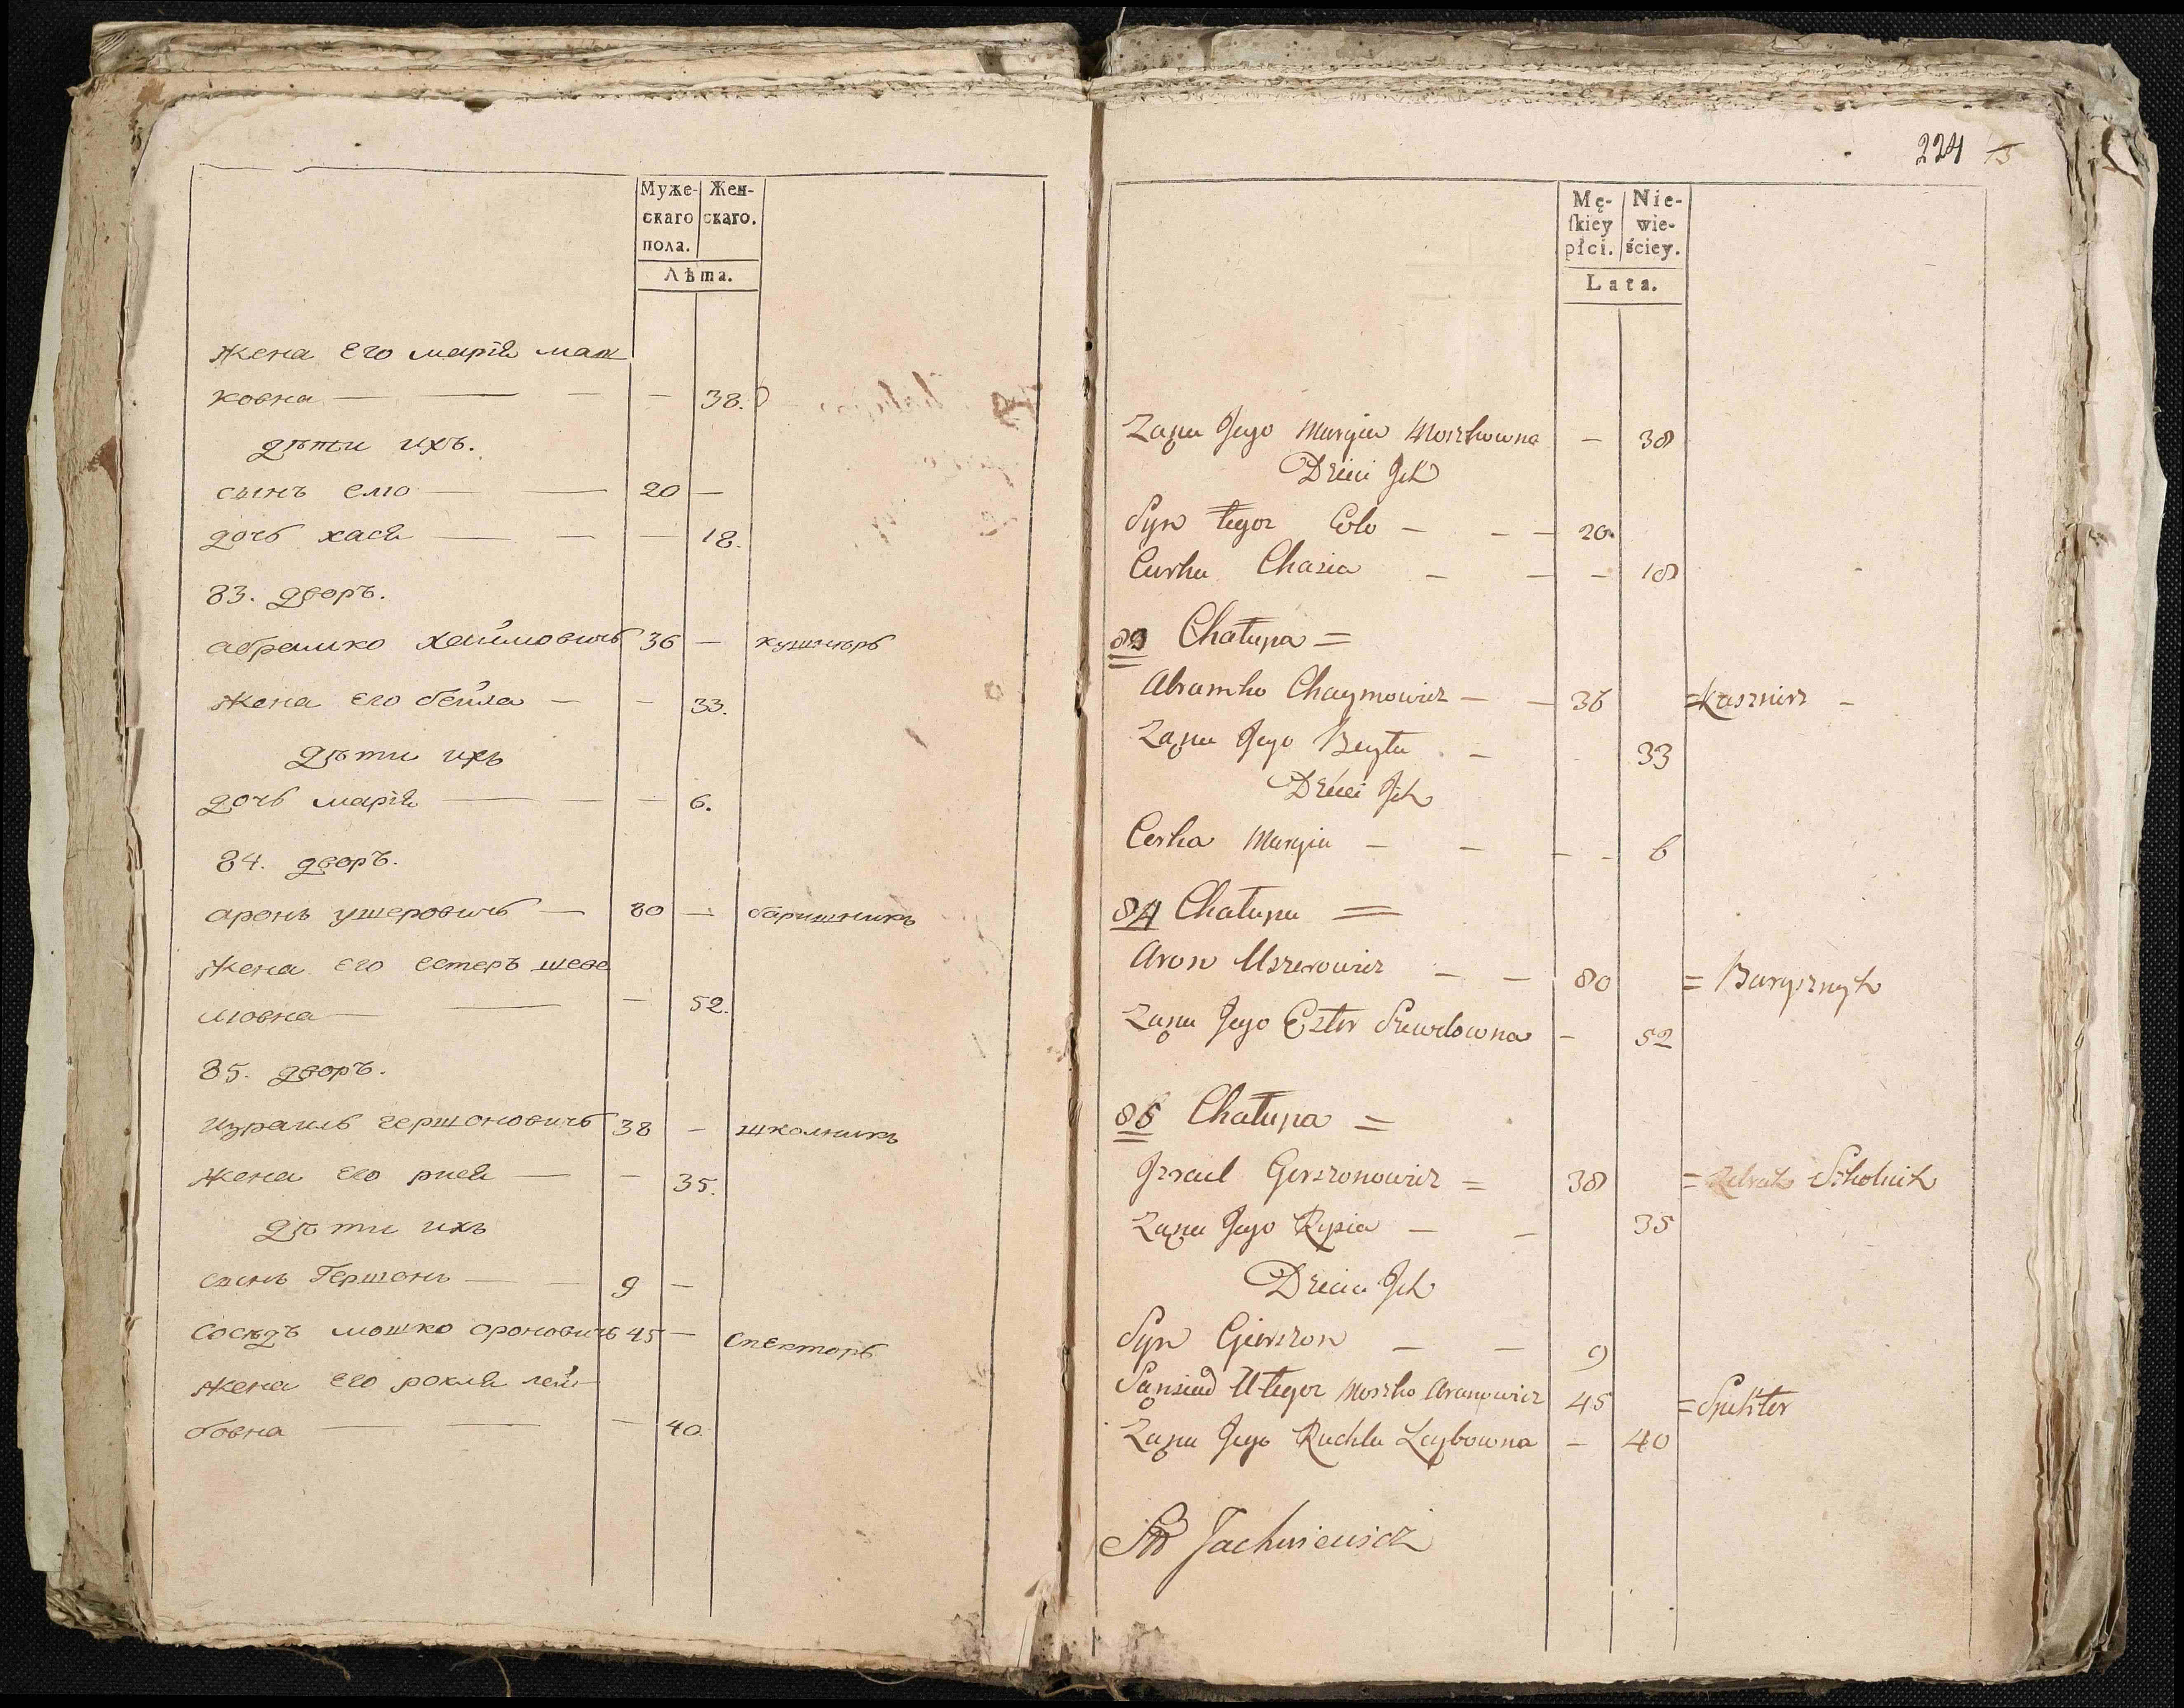 Муже- Жен-
скаго скаго.
пола.
Лѣта.
жена его марія маш
ковна — — — — 38.
дѣти ихъ.
сынъ елю — — 20 —
дочь хася — — — 18.
83. дворъ.
абрамко хаймовичь 36 — кушнѣръ
жена его бейла — — 33.
дѣти ихъ
дочь марія — — — 6.
84. дворъ.
аронъ ушеровичь — 80 — баришникъ
жена его естеръ шеве
лювна — — — 52.
85. дворъ.
израиль гершоновичь 38 — школникъ
жена его рися — — 35.
дѣти ихъ
сынъ Гершонъ — — 9 —
сосѣдъ мошко ороновичь 45 — спекторъ
жена его рохля лей-
бовна — — — 40.
224 15
Mę- Nie-
ſkiey wie-
płci. ściey.
Lata.
Ząna Jego Maryia Moszkowna — 38
Dzieci Jch
Syn tegoż Elo — — — 20.
Curka Chasia — — — 18
83 Chałupa =
Abramko Chaymowicz — — 36 = Kusznierz —
Ząna Jego Beyła — 33
Dzieci Jch
Corka Maryia — — — — 6
84 Chałupa =
Aron Uszerowicz — — 80 = Barysznyk
Ząna Jego Ester Szewelowna — 52
85 Chałupa =
Jzrael Gerszonowicz = 38 = Szkolnik
Ząna Jego Rysia — — 35
Dzieci Jch
Syn Gierszon — — 9
Sąnsiad U tegoż Moszko Aranowicz 45 = Spektor
Ząna Jego Ruchla Leybowna — 40
Jachniewicz